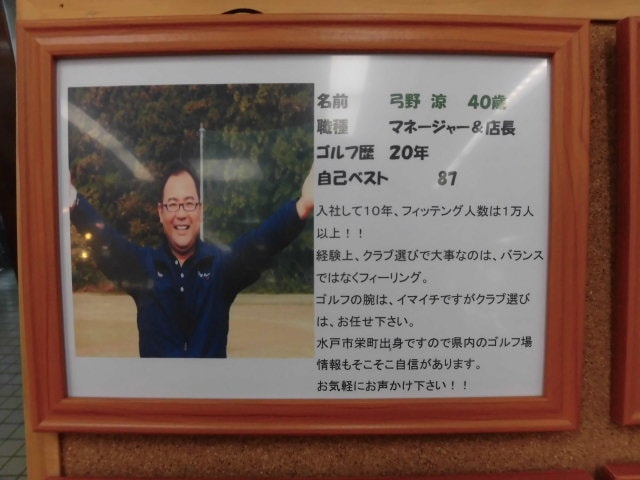 名前 弓野 涼 40歳
職種 マネージャー&店長
ゴルフ歴 20年
自己ベスト 87
入社して10年、フィッテング人数は1万人
以上！！
経験上、クラブ選びで大事なのは、バランス
ではなくフィーリング。
ゴルフの腕は、イマイチですがクラブ選び
は、お任せ下さい。
水戸市栄町出身ですので県内のゴルフ場
情報もそこそこ自信があります。
お気軽にお声かけ下さい！！